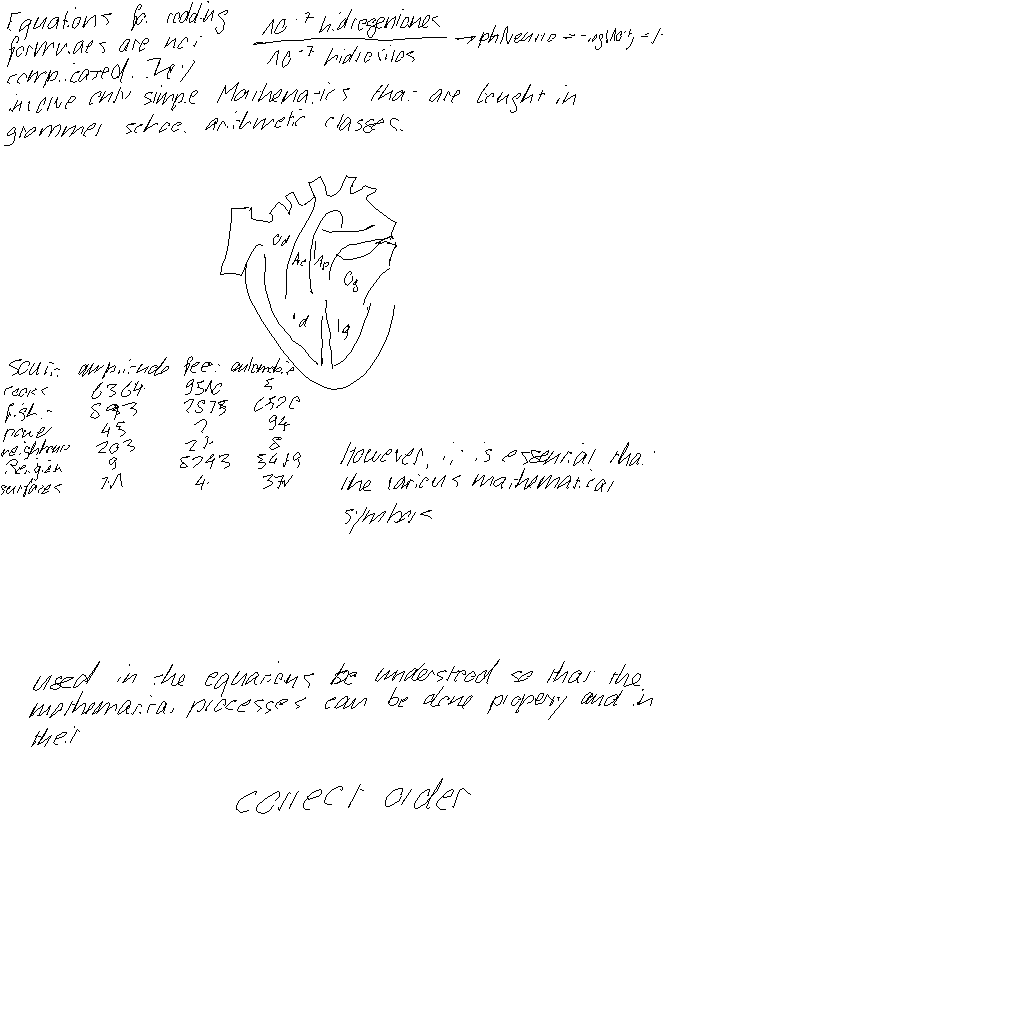 Equations for reading
formulaes are not
complicated. They
involve only simple Mathematics that are taught in
grammer school arithmetic classes.
10^-7 hidrogeniones
10^-7 hidroxilos
→ phNeutro = -log(10^-7) = 7
Od
Ac
Ap
Og
d
g
south amplitude feet automobile
years 6364 9510 5
fight 893 7575 6526
none 45 7 94
neighbours 203 27 8
Religion 9 8243 5419
surfaces 4
However, it is essential that
the various mathematical
symbols
used in the equations be understood so that the
mathematical processes can be done properly and in
their
correct order